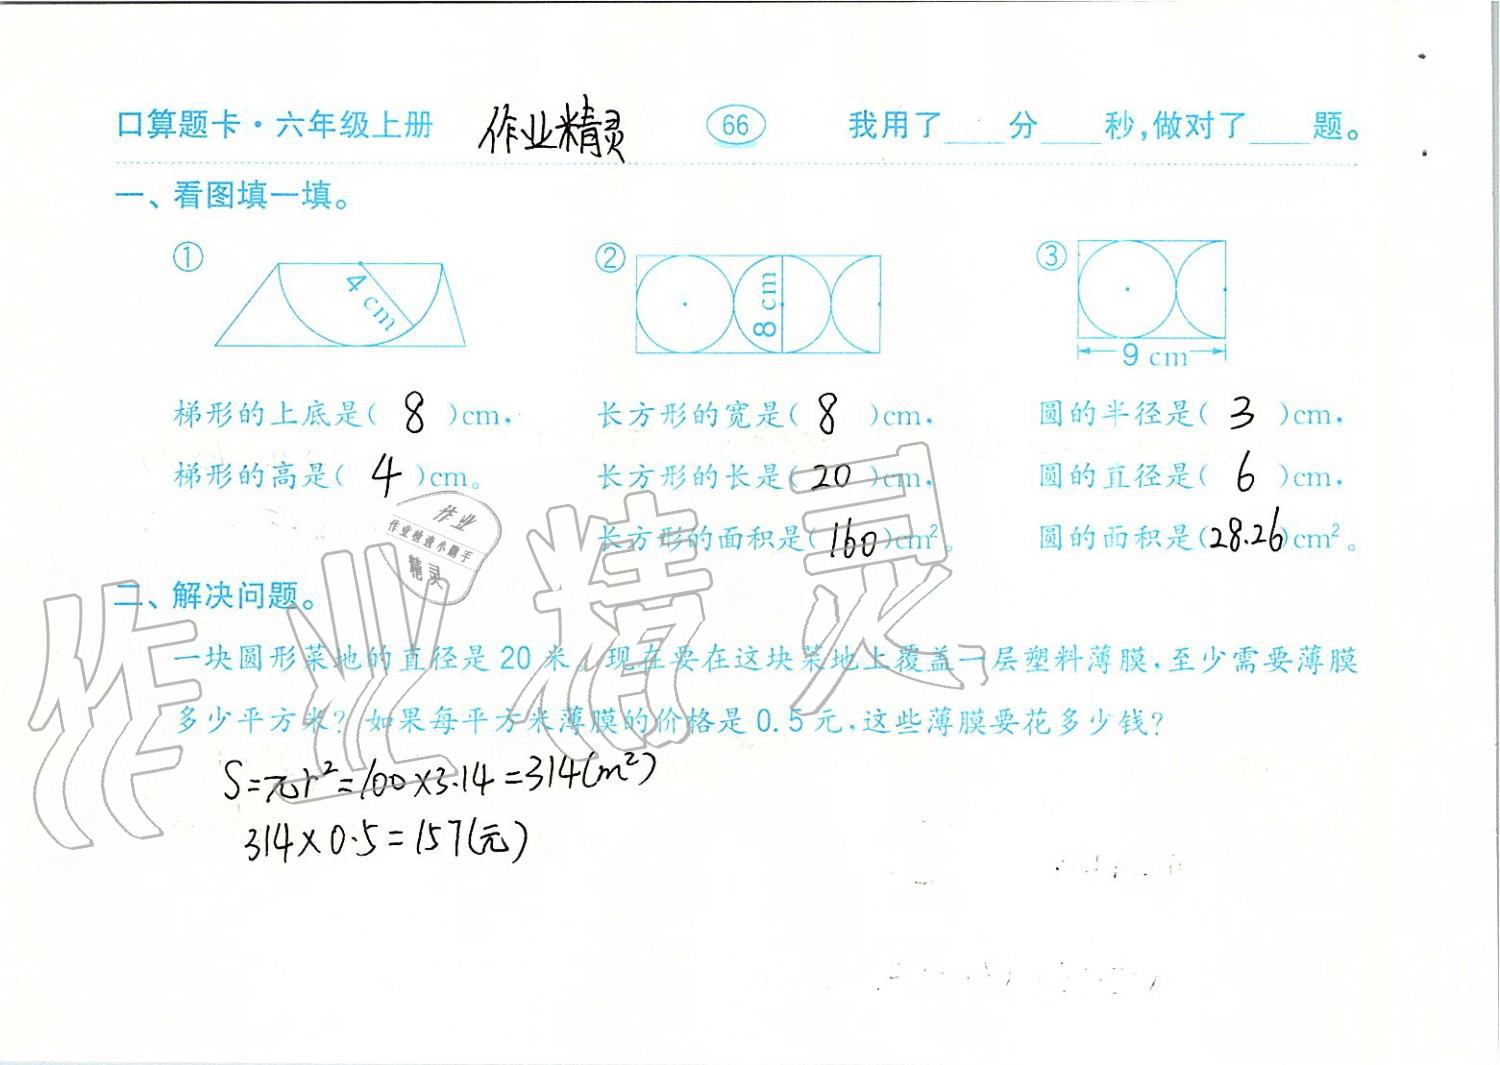 口算题卡·六年级上册 作业精灵 66 我用了 分 秒,做对了 题。
一、看图填一填。
① ② ③
4 cm
8 cm
9 cm
梯形的上底是( 8 )cm, 长方形的宽是( 8 )cm, 圆的半径是( 3 )cm,
梯形的高是( 4 )cm。 长方形的长是( 20 )cm, 圆的直径是( 6 )cm,
长方形的面积是( 160 )cm²。 圆的面积是( 28.26 )cm²。
作业
作业检查小助手
精灵
作业精灵
二、解决问题。
一块圆形菜地的直径是20米。现在要在这块菜地上覆盖一层塑料薄膜,至少需要薄膜
多少平方米?如果每平方米薄膜的价格是0.5元,这些薄膜要花多少钱?
S=πr²=100×3.14=314(m²)
314×0.5=157(元)